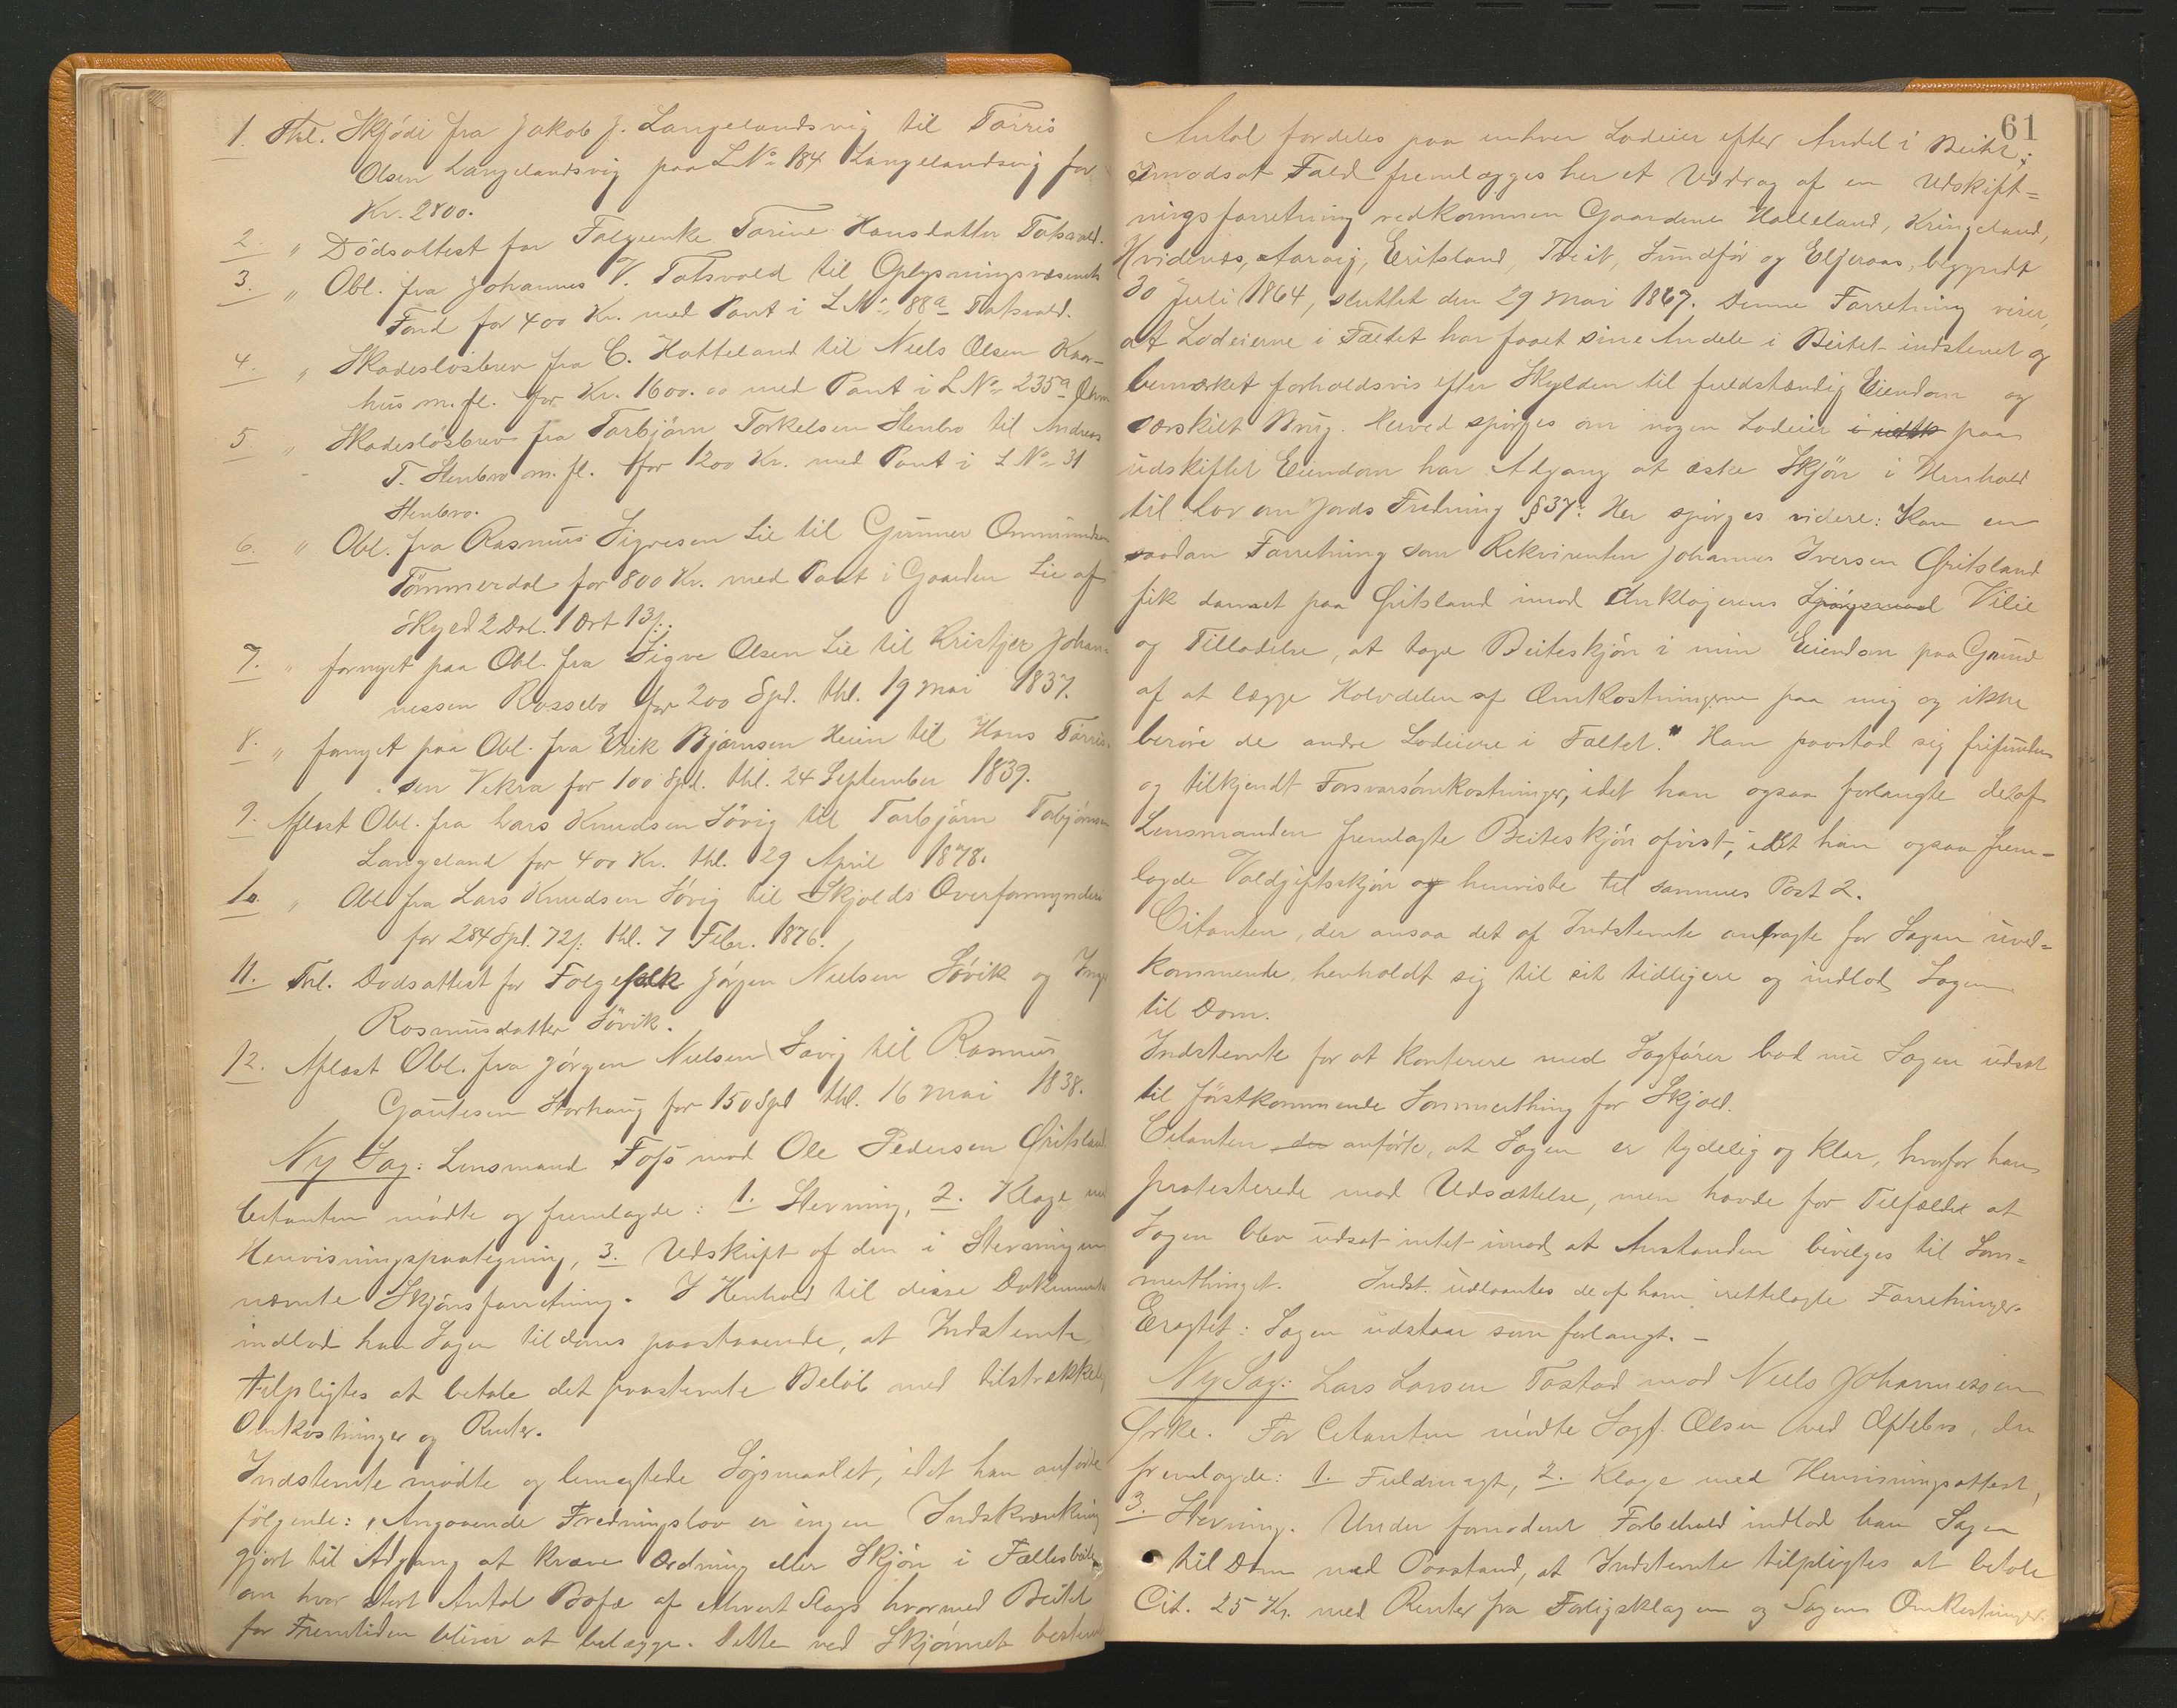 1. Thl. Skjöde fra Jakob J. Langelandsvig til Tørris
Olsen Langelandsvig paa L.No. 184 Langelandsvig for
Kr. 2800.
2. " Dödsattest for Folgeenke Torine Hansdatter Totsvold.
3. " Obl. fra Johannes V. Totsvold til Oplysningsvæsenets
Fond for 400 Kr. med Pant i L.No. 88a Totsvold.
4. " Skadeslösbrev fra C. Hatteland til Niels Olsen
hus m.fl. for Kr. 1600.00 med Pant i L.No. 235a
5. " Skadeslösbrev fra Torbjörn Torkelsen Stenbro til Andreas
T. Stenbro m. fl. for 1200 Kr. med Pant i L.No. 31
Stenbro.
6. " Obl. fra Rasmus Sigvesen Lie til Gunner Ommundsen
Tömmerdal for 800 Kr. med Pant i Gaarden Lie af
Skyld 2 Dal. 1 Ort 13 s.
7. " fornyet paa Obl. fra Sigve Olsen Lie til Kristjer Johan-
nessen Rossebø for 200 Spd. thl. 19 Mai 1837.
8. " fornyet paa Obl. fra Erik Bjørnsen Heim til Hans Tørris-
sen Vikra for 100 Spd. thl. 24 September 1839.
9. Aflæst Obl. fra Lars Knudsen Søvig til Torbjörn Torbjörnsen
Langeland for 400 Kr. thl. 29 April 1878.
10. " Obl. fra Lars Knudsen Søvig til Skjolds Overformynderi
for 284 Spd. 72 s. thl. 7 Febr. 1876.
11. Thl. Dødsattest for Folgefolk Jörgen Nielsen Søvik og Inger
Rasmusdatter Søvik.
12. Aflæst Obl. fra Jörgen Nielsen Søvig til Rasmus
Gautesen Storhaug for 150 Spd thl. 16 Mai 1838.
Ny Sag: Lensmand Foss mod Ole Pedersen Øritsland
Citanten mødte og fremlagde: 1. Stevning, 2. Klage med
Henvisningspaategning, 3. Udskrift af den i Stevningen
nævnte Skjønsforretning. I Henhold til disse Dokumenter
indlod han Sagen til Doms paastaaende, at Indstevnte
tilpligtes at betale det paastevnte Beløb med tilstrækkelig
Omkostninger og Renter.
Indstevnte mødte og benegtede Søgsmaalet, idet han anførte
følgende: "Angaaende Fredningslov er ingen Indskrænkning
gjort til Adgang at kræve Ordning eller Skjön i Fællesbeite
om hvor stort Antal Bofæ af ethvert Slags hvormed Beitet
for Fremtiden bliver at belægge. Dette ved Skjønnet bestemte
61
Antal fordeles paa enhver Lodeier efter Andel i Beitet;
Imodsat Fald fremlægges her et Uddrag af en Udskift-
ningsforretning vedkommen Gaardene Halleland, Kringeland,
Hvidenæs, Aarvig, Eritsland, Tveit, Sundfør og Eljeraas, begyndt
30 Juli 1864, sluttet den 29 Mai 1867. Denne Forretning viser,
at Lodeierne i Fæltet har faaet sine Andele i Beitet indstenet og
bemærket forholdsvis efter Skylden til fuldstændig Eiendom og
særskilt Brug. Herved spörges om nogen Lodeier i udsk paa
udskiftet Eiendom har Adgang at æske Skjön i Henhold
til Lov om Jords Fredning § 37? Her spörges videre: Kan en
saadan Forretning som Rekvirenten Johannes Iversen Øritsland
fik dannet paa Øritsland imod Anklagerens Spörgsmaal Vilie
og Tilladelse, at tage Beiteskjön i min Eiendom paa Grund
af at lægge Halvdelen af Omkostningerne paa mig og ikke
berøre de andre Lodeiere i Fæltet." Han paastod sig frifunden
og tilkjendt Forsvarsomkostninger, idet han ogsaa forlangte det af
Lensmanden fremlagte Beiteskjön oplæst, idet han ogsaa frem-
lagde Voldgiftsskjön og henviste til sammes Post 2.
Citanten, der ansaa det af Indstevnte anbragte for Sagen uved-
kommende, henholdt sig til sit tidligere og indlod Sagen
til Dom.
Indstevnte for at konferere med Sagfører bad nu Sagen udsat
til förstkommende Sommerthing for Skjold.
Citanten der anførte, at Sagen er tydelig og klar, hvorfor han
protesterede mod Udsættelse, men havde for Tilfældet at
Sagen blev udsat intet imod, at Anstanden bevilges til Som-
merthinget. Indst. udlaantes de af ham irettelagte Forretninger.
Eragtet: Sagen udstaar som forlangt. -
Ny Sag: Lars Larsen Tostad mod Niels Johannesen
Ørke. For Citanten mødte Sagf. Olsen ved Optebro, der
fremlagde: 1. Fuldmagt, 2. Klage med Henvisningsattest,
3. Stevning. Under fornødent Forbehold indlod han Sagen
til Dom med Paastand, at Indstevnte tilpligtes at betale
Cit. 25 Kr. med Renter fra Forligsklagen og Sagens Omkostninger.